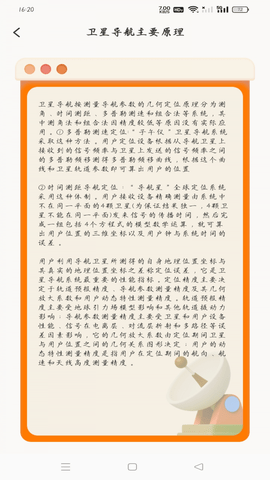 16:20
卫星导航主要原理
卫星导航按测量导航参数的几何定位原理分为测
角、时间测距、多普勒测速和组合法等系统，其
中测角法和组合法因精度较低等原因没有实际应
用。①多普勒测速定位："子午仪"卫星导航系统
采取这种方法。用户定位设备根据从导航卫星上
接收到的信号频率与卫星上发送的信号频率之间
的多普勒频移测得多普勒频移曲线，根据这个曲
线和卫星轨道参数即可算出用户的位置
②时间测距导航定位："导航星"全球定位系统
采用这种体制。用户接收设备精确测量由系统中
不在同一平面的4颗卫星(为保证结果独一，4颗卫
星不能在同一平面)发来信号的传播时间，然后完
成一组包括4个方程式的模型数学运算，就可算
出用户位置的三维坐标以及用户钟与系统时间的
误差。
用户利用导航卫星所测得的自身地理位置坐标与
其真实的地理位置坐标之差称定位误差，它是卫
星导航系统最重要的性能指标。定位精度主要决
定于轨道预报精度、导航参数测量精度及其几何
放大系数和用户动态特性测量精度。轨道预报精
度主要受地球引力场模型影响和其他轨道摄动力
影响；导航参数测量精度主要受卫星和用户设备
性能、信号在电离层、对流层折射和多路径等误
差因素影响，它的几何放大系数由定位期间卫星
与用户位置之间的几何关系图形决定；用户的动
态特性测量精度是指用户在定位期间的航向、航
速和天线高度测量精度。